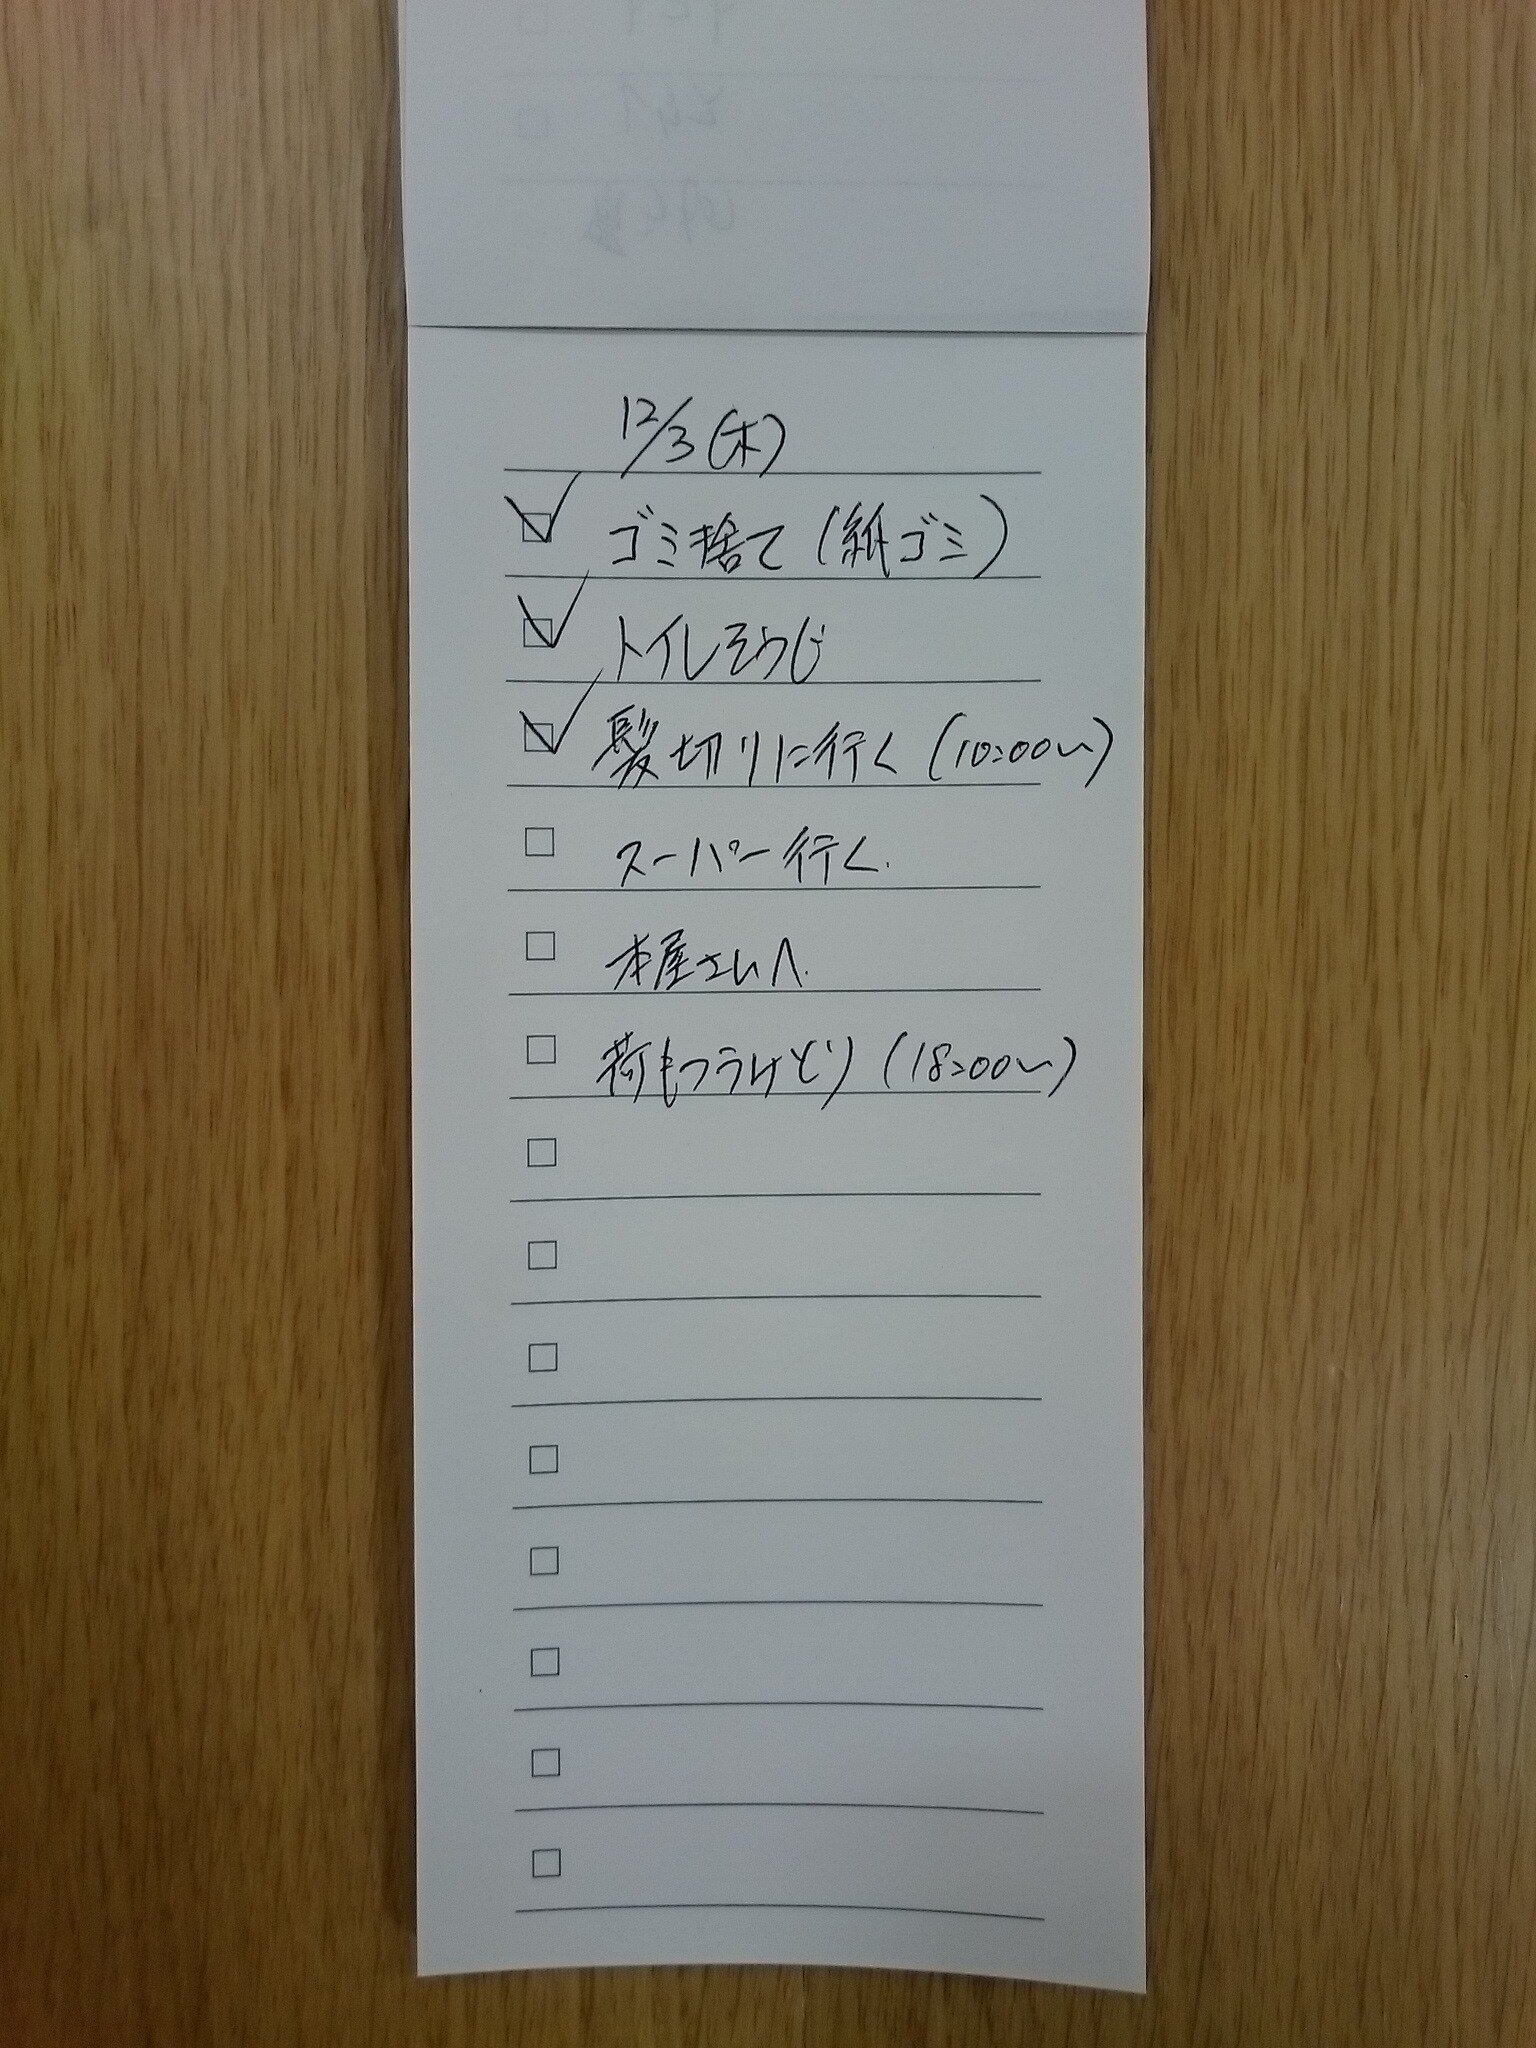 12/3(木)
ゴミ捨て(紙ゴミ)
トイレそうじ
髪切りに行く(10:00〜)
スーパー行く.
本屋さんへ.
荷もつうけとり(18:00〜)